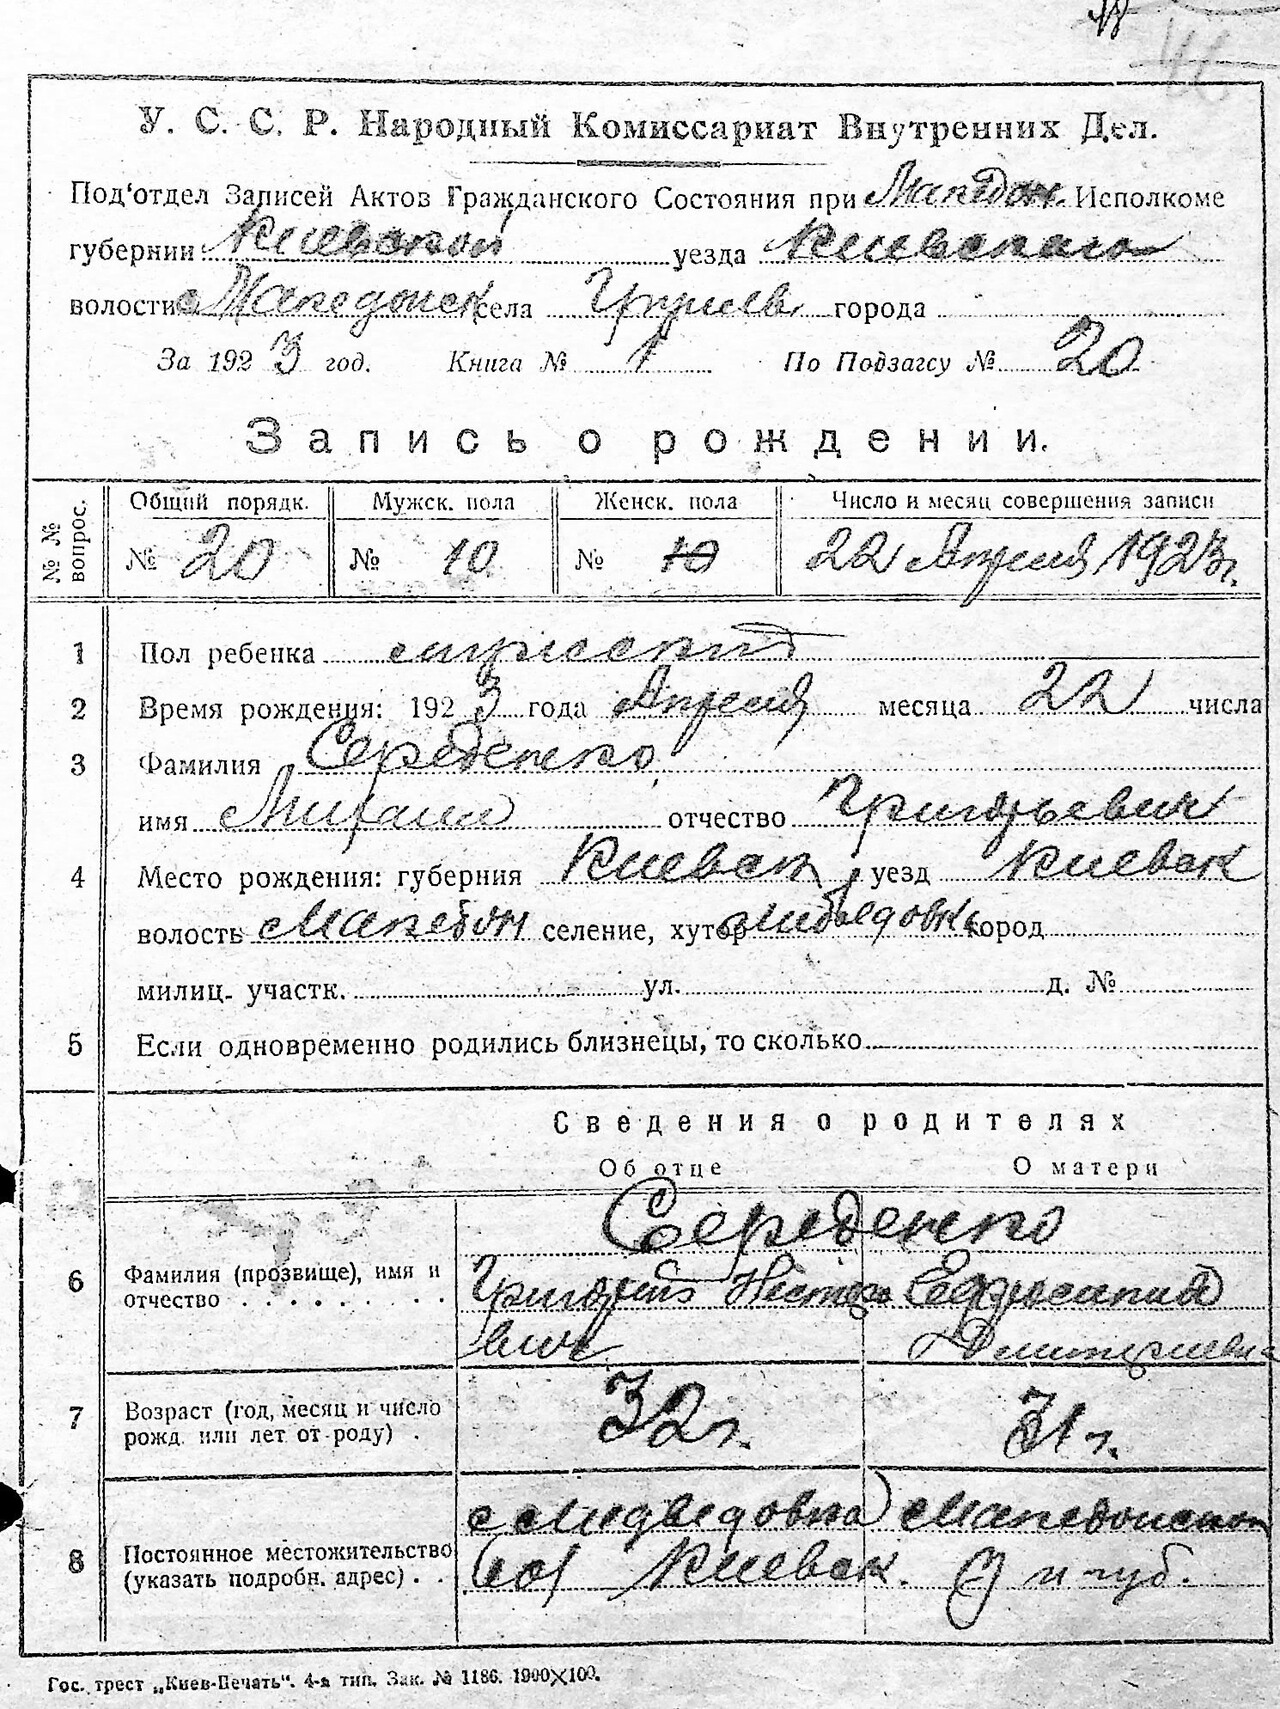 У. С. С. Р. Народный Комиссариат Внутренних Дел.
Под'отдел Записей Актов Гражданского Состояния при Македон. Исполкоме
губернии Киевской уезда Киевскаго
волости Македонск села города
За 1923 год. Книга № 1 По Подзагсу № 20
Запись о рождении.
№ № вопрос. Общий порядк. Мужск. пола Женск. пола Число и месяц совершения записи
№ 20 № 10 № 10 22 Апреля 1923 г.
1 Пол ребенка мужской
2 Время рождения: 1923 года Апреля месяца 22 числа
3 Фамилия Середенко
имя Михаил отчество Григорьевич
4 Место рождения: губерния Киевск уезд Киевск
волость Македон селение, хутор город
милиц. участк. ул. д. №
5 Если одновременно родились близнецы, то сколько
Сведения о родителях
Об отце О матери
Середенко
6 Фамилия (прозвище), имя и Григорий Нестеро
отчество вич Дмитриевна
7 Возраст (год, месяц и число 32 г. 31 г.
рожд. или лет от роду)
с Медведовка Македонской
8 Постоянное местожительство
(указать подробн. адрес) вол Киевск. у и губ.
Гос. трест „Киев-Печать“. 4-я тип. Зак. № 1186. 1900×100.